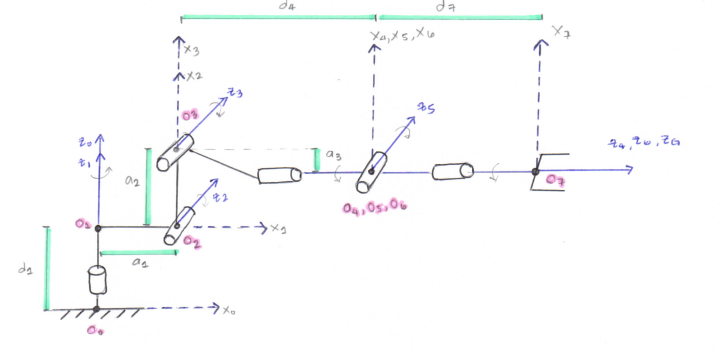 d4 d7
x3
x4,x5,x6
x7
x2
z3
O3
z5
z0
z1
a2
a3
z4, z6, zG
O7
z2
O4,O5,O6
O1
O2
x1
a1
d1
x0
O0